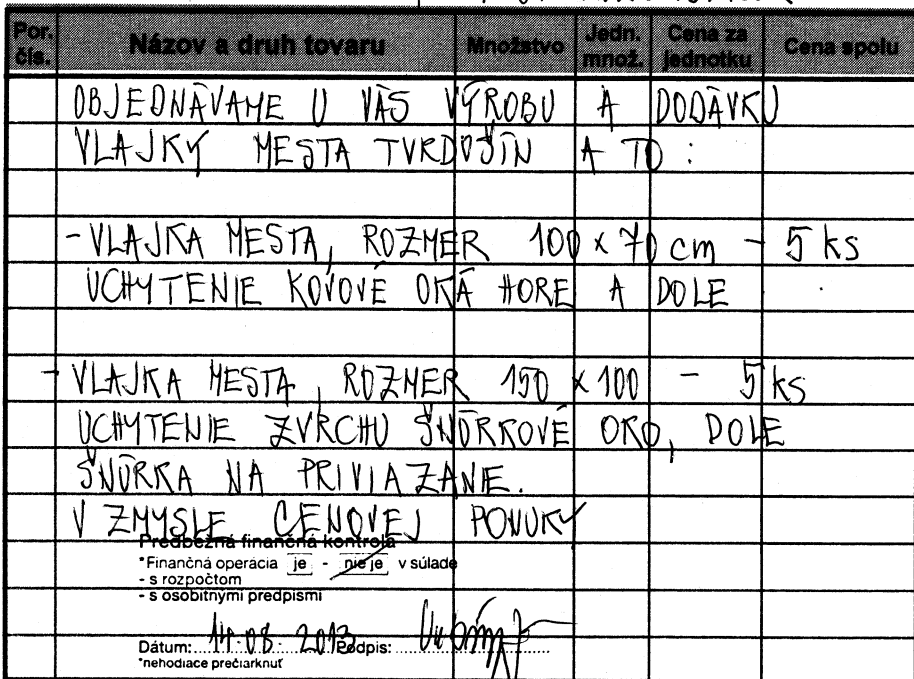 Por. čís. Názov a druh tovaru Množstvo Jedn. množ. Cena za jednotku Cena spolu
OBJEDNÁVAME U VÁS VÝROBU A DODÁVKU
VLAJKY MESTA TVRDOŠÍN A TO :
- VLAJKA MESTA, ROZMER 100 x 70 cm - 5 ks
UCHYTENIE KOVOVÉ OKÁ HORE A DOLE
- VLAJKA MESTA, ROZMER 150 x 100 - 5 ks
UCHYTENIE ZVRCHU ŠNÚRKOVÉ OKO, DOLE
ŠNÚRKA NA PRIVIAZANIE.
V ZMYSLE CENOVEJ PONUKY
Predbežná finančná kontrola
*Finančná operácia je - nie je v súlade
- s rozpočtom
- s osobitnými predpismi
Dátum: 14.08.2013 Podpis:
*nehodiace prečiarknuť